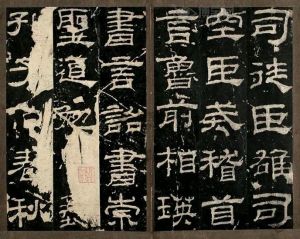 司徒臣雄司
空臣戒稽首
言魯前相瑛
書言詔書崇
聖道勉蓺
孔子作春秋